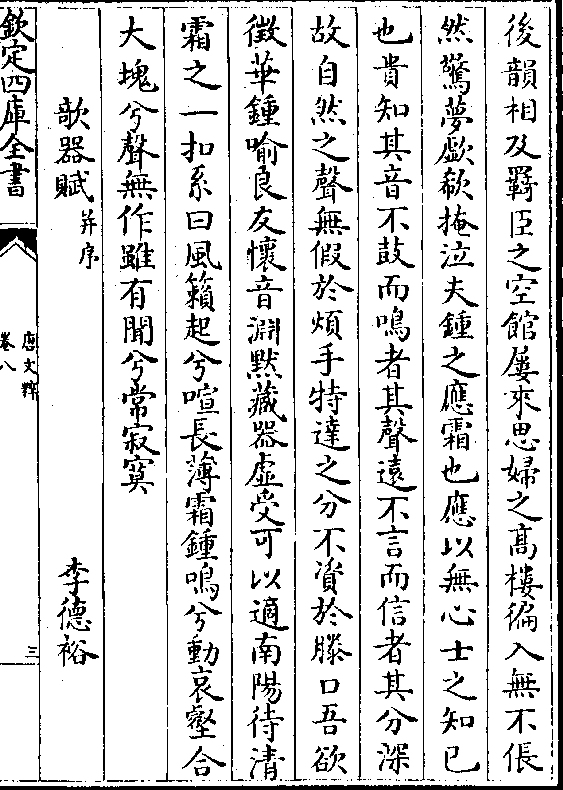 後韻相及羇臣之空館屢來思婦之髙樓徧入無不倀
然驚夢歔欷掩泣夫鍾之應霜也應以無心士之知已
也貴知其音不鼓而鳴者其聲逺不言而信者其分深
故自然之聲無假於煩手特達之分不資於滕口吾欲
徴華鍾喻良友懐音淵黙藏器虚受可以適南陽待清
霜之一扣系曰風籟起兮喧長薄霜鍾鳴兮動哀壑合
大塊兮聲無作雖有聞兮常寂寞
欹器賦并序
李德裕
欽定四庫全書
唐文粹
卷八
三